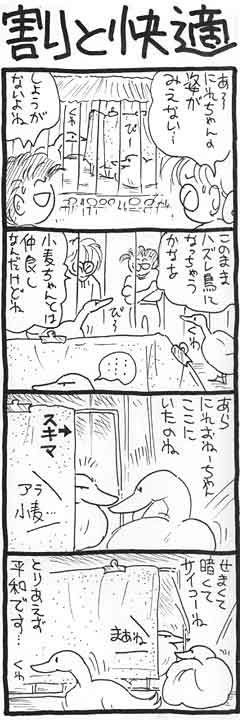 割りと快適
あ〜
にれちゃんの
姿が
みえない…
ぴ〜
しょうが
ないよね
このまま
ハズレ鳥に
なっちゃう
かなぁ
くわ
ぴ〜
小麦ちゃんとは
仲良し
なんだけどね
……
あら
にれおねーちゃん
ここに
いたのね
スキマ
→
アラ
小麦…
せまくて
暗くて
サイコーね
まあね
とりあえず
平和です…
くわ